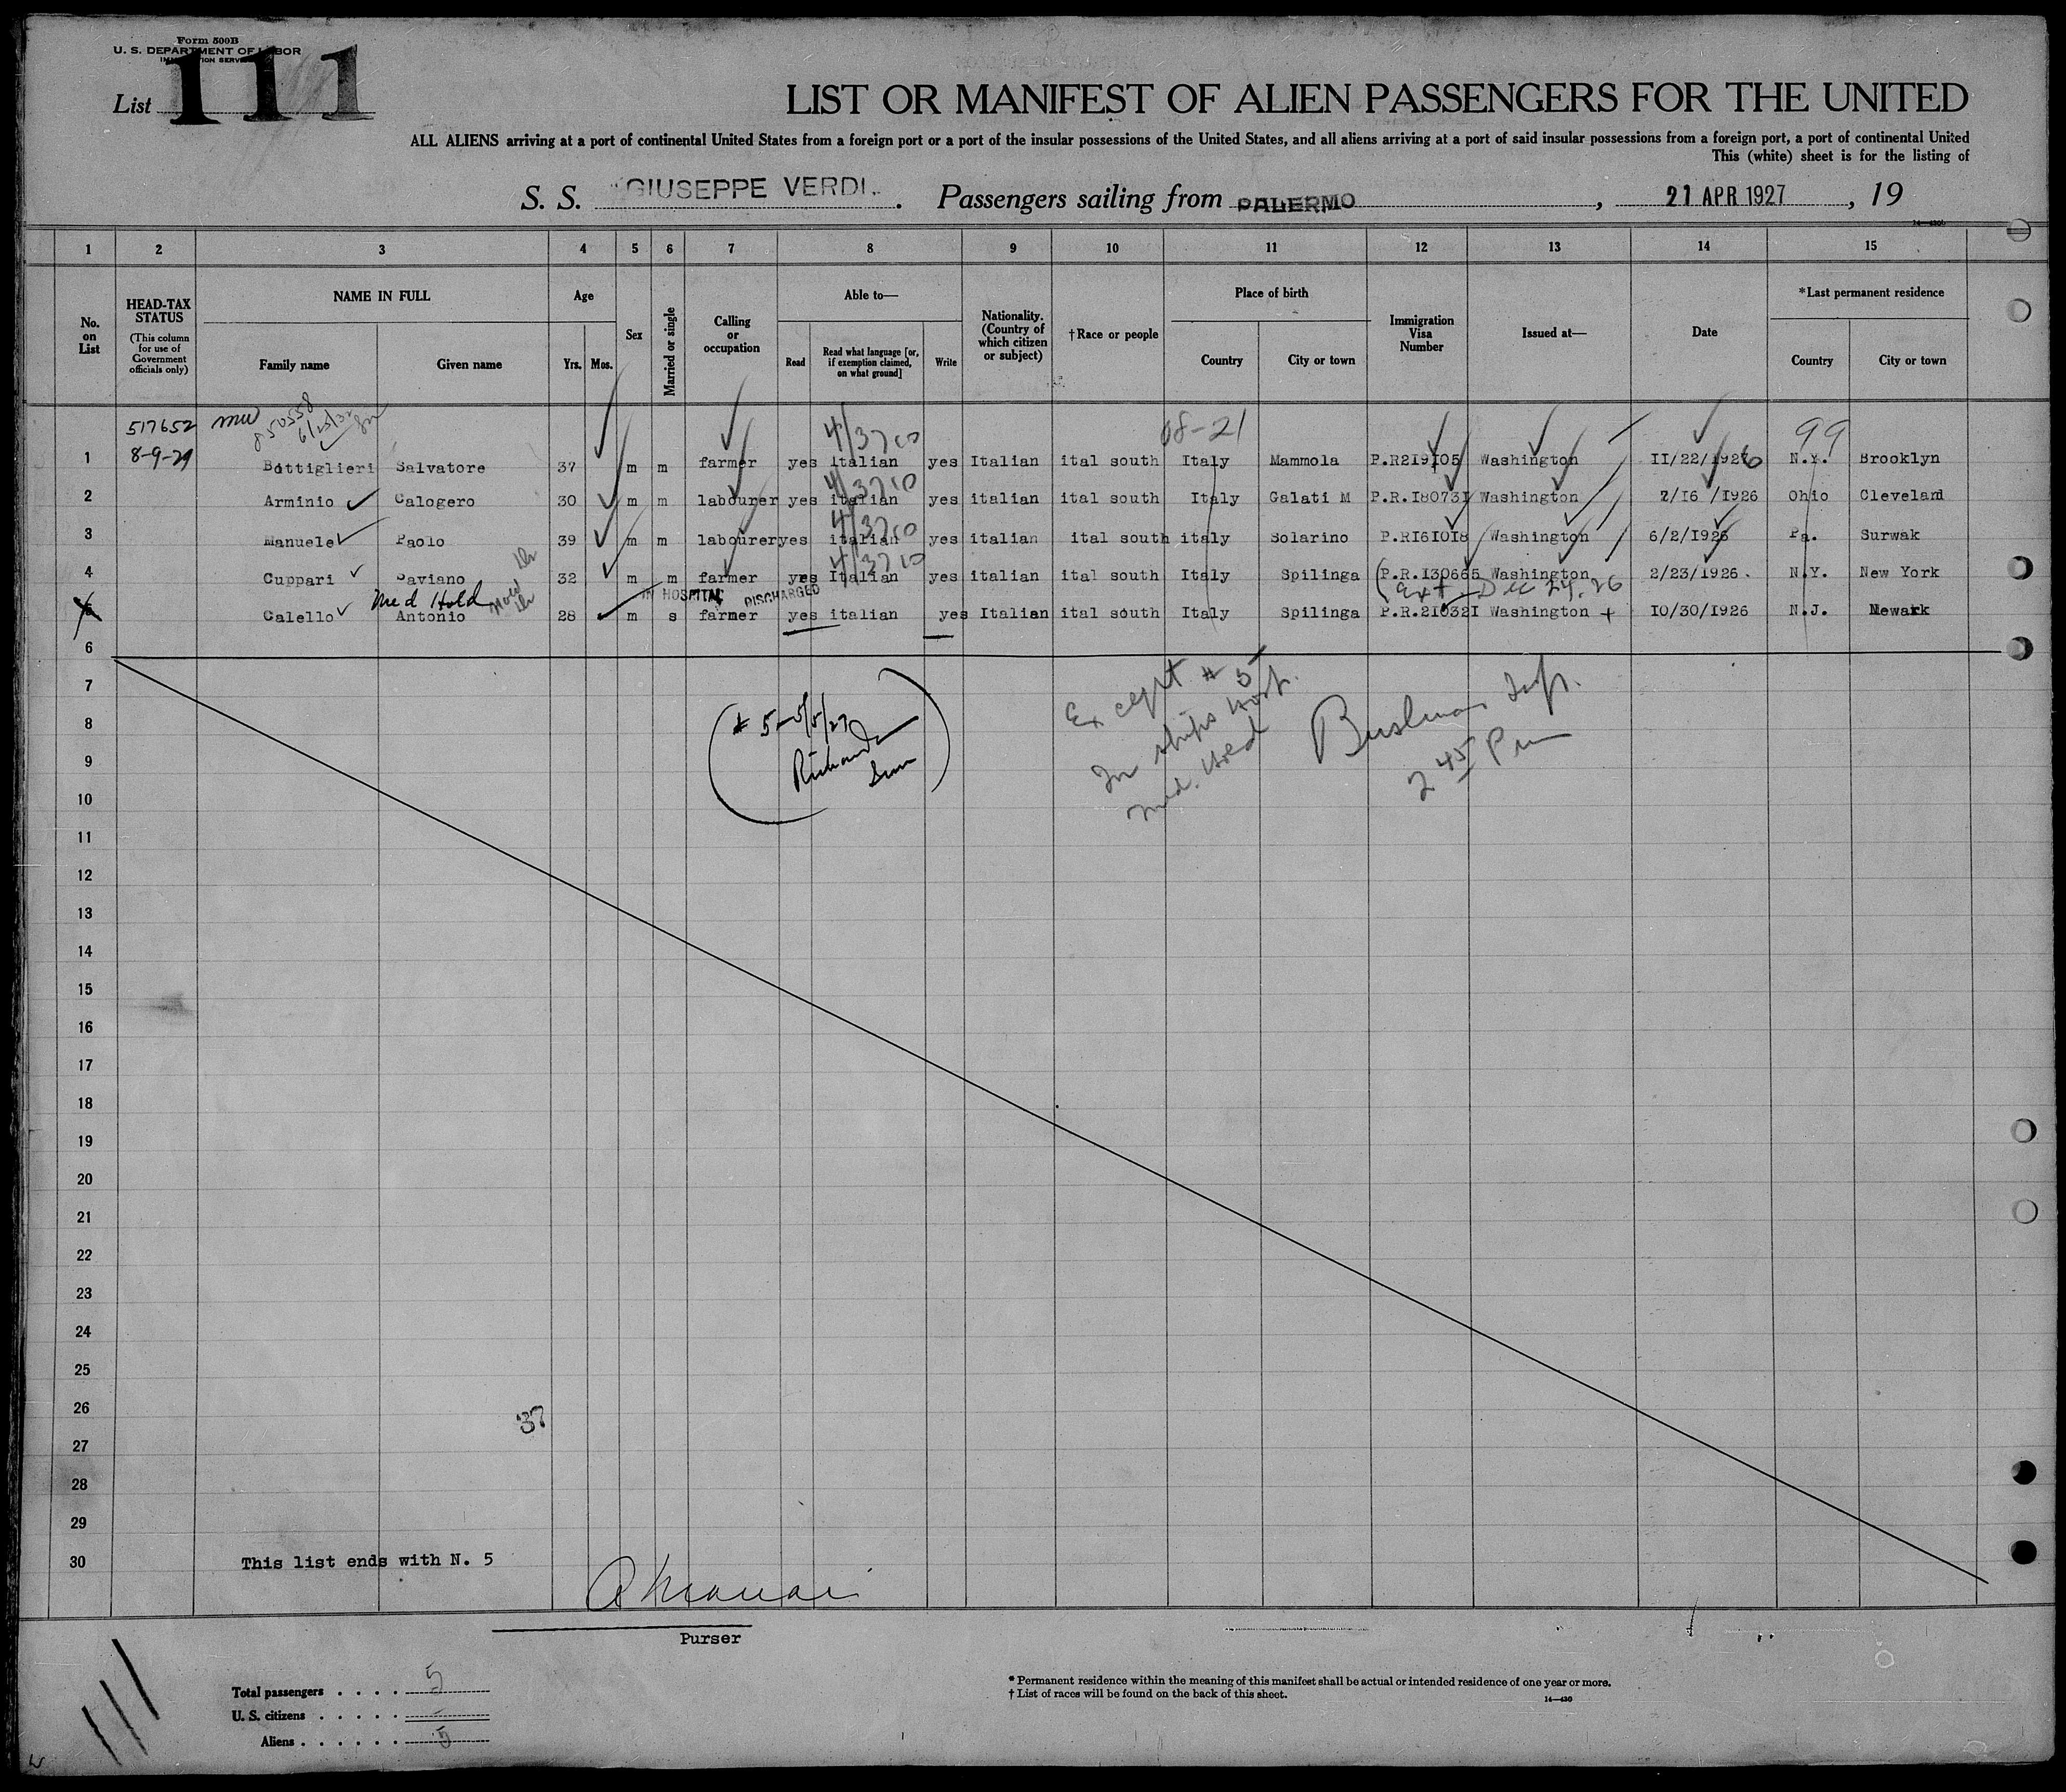 Form 500B
U. S. DEPARTMENT OF LABOR
IMMIGRATION SERVICE
List 111
LIST OR MANIFEST OF ALIEN PASSENGERS FOR THE UNITED
ALL ALIENS arriving at a port of continental United States from a foreign port or a port of the insular possessions of the United States, and all aliens arriving at a port of said insular possessions from a foreign port, a port of continental United
This (white) sheet is for the listing of
S. S. "GIUSEPPE VERDI". Passengers sailing from PALERMO, 21 APR 1927, 19
1 2 3 4 5 6 7 8 9 10 11 12 13 14 15
No. on List
HEAD-TAX STATUS (This column for use of Government officials only)
NAME IN FULL
Family name Given name
Age
Yrs. Mos.
Sex
Married or single
Calling or occupation
Able to—
Read
Read what language [or, if exemption claimed, on what ground]
Write
Nationality. (Country of which citizen or subject)
†Race or people
Place of birth
Country City or town
Immigration Visa Number
Issued at—
Date
*Last permanent residence
Country City or town
517652 850558 6/25/32 4/3710 08-21 99
8-9-29
1 Bottiglieri Salvatore 37 m m farmer yes italian yes Italian ital south Italy Mammola P.R219105 Washington II/22/1926 N.Y. Brooklyn
4/3710
2 Arminio Calogero 30 m m labourer yes italian yes italian ital south Italy Galati M P.R.I80731 Washington 2/I6 /I926 Ohio Cleveland
4/3710
3 Manuele Paolo 39 m m labourer yes italian yes italian ital south italy Solarino P.RI6I0I8 Washington 6/2/I926 Pa. Surwak
4/3710
4 Cuppari Saviano 32 m m farmer yes Italian yes italian ital south Italy Spilinga (P.R.I30665 Washington 2/23/I926. N.Y. New York
Med Hold IN HOSPITAL DISCHARGED (Ext - Dec 24, 26
5 Calello Antonio 28 m s farmer yes italian yes Italian ital south Italy Spilinga P.R.2I032I Washington + IO/30/I926 N.J. Newark
6
7
8
9
10
11
12
13
14
15
16
17
18
19
20
21
22
23
24
25
26
27
28
29
30
# 5 - 5/5/27
Except # 5
In ships Hosp.
Med. Hold
Insp.
2 45 Pm
37
This list ends with N. 5
Purser
Total passengers . . . . 5
U. S. citizens . . . . .
Aliens . . . . . . 5
111
* Permanent residence within the meaning of this manifest shall be actual or intended residence of one year or more.
† List of races will be found on the back of this sheet.
14—430